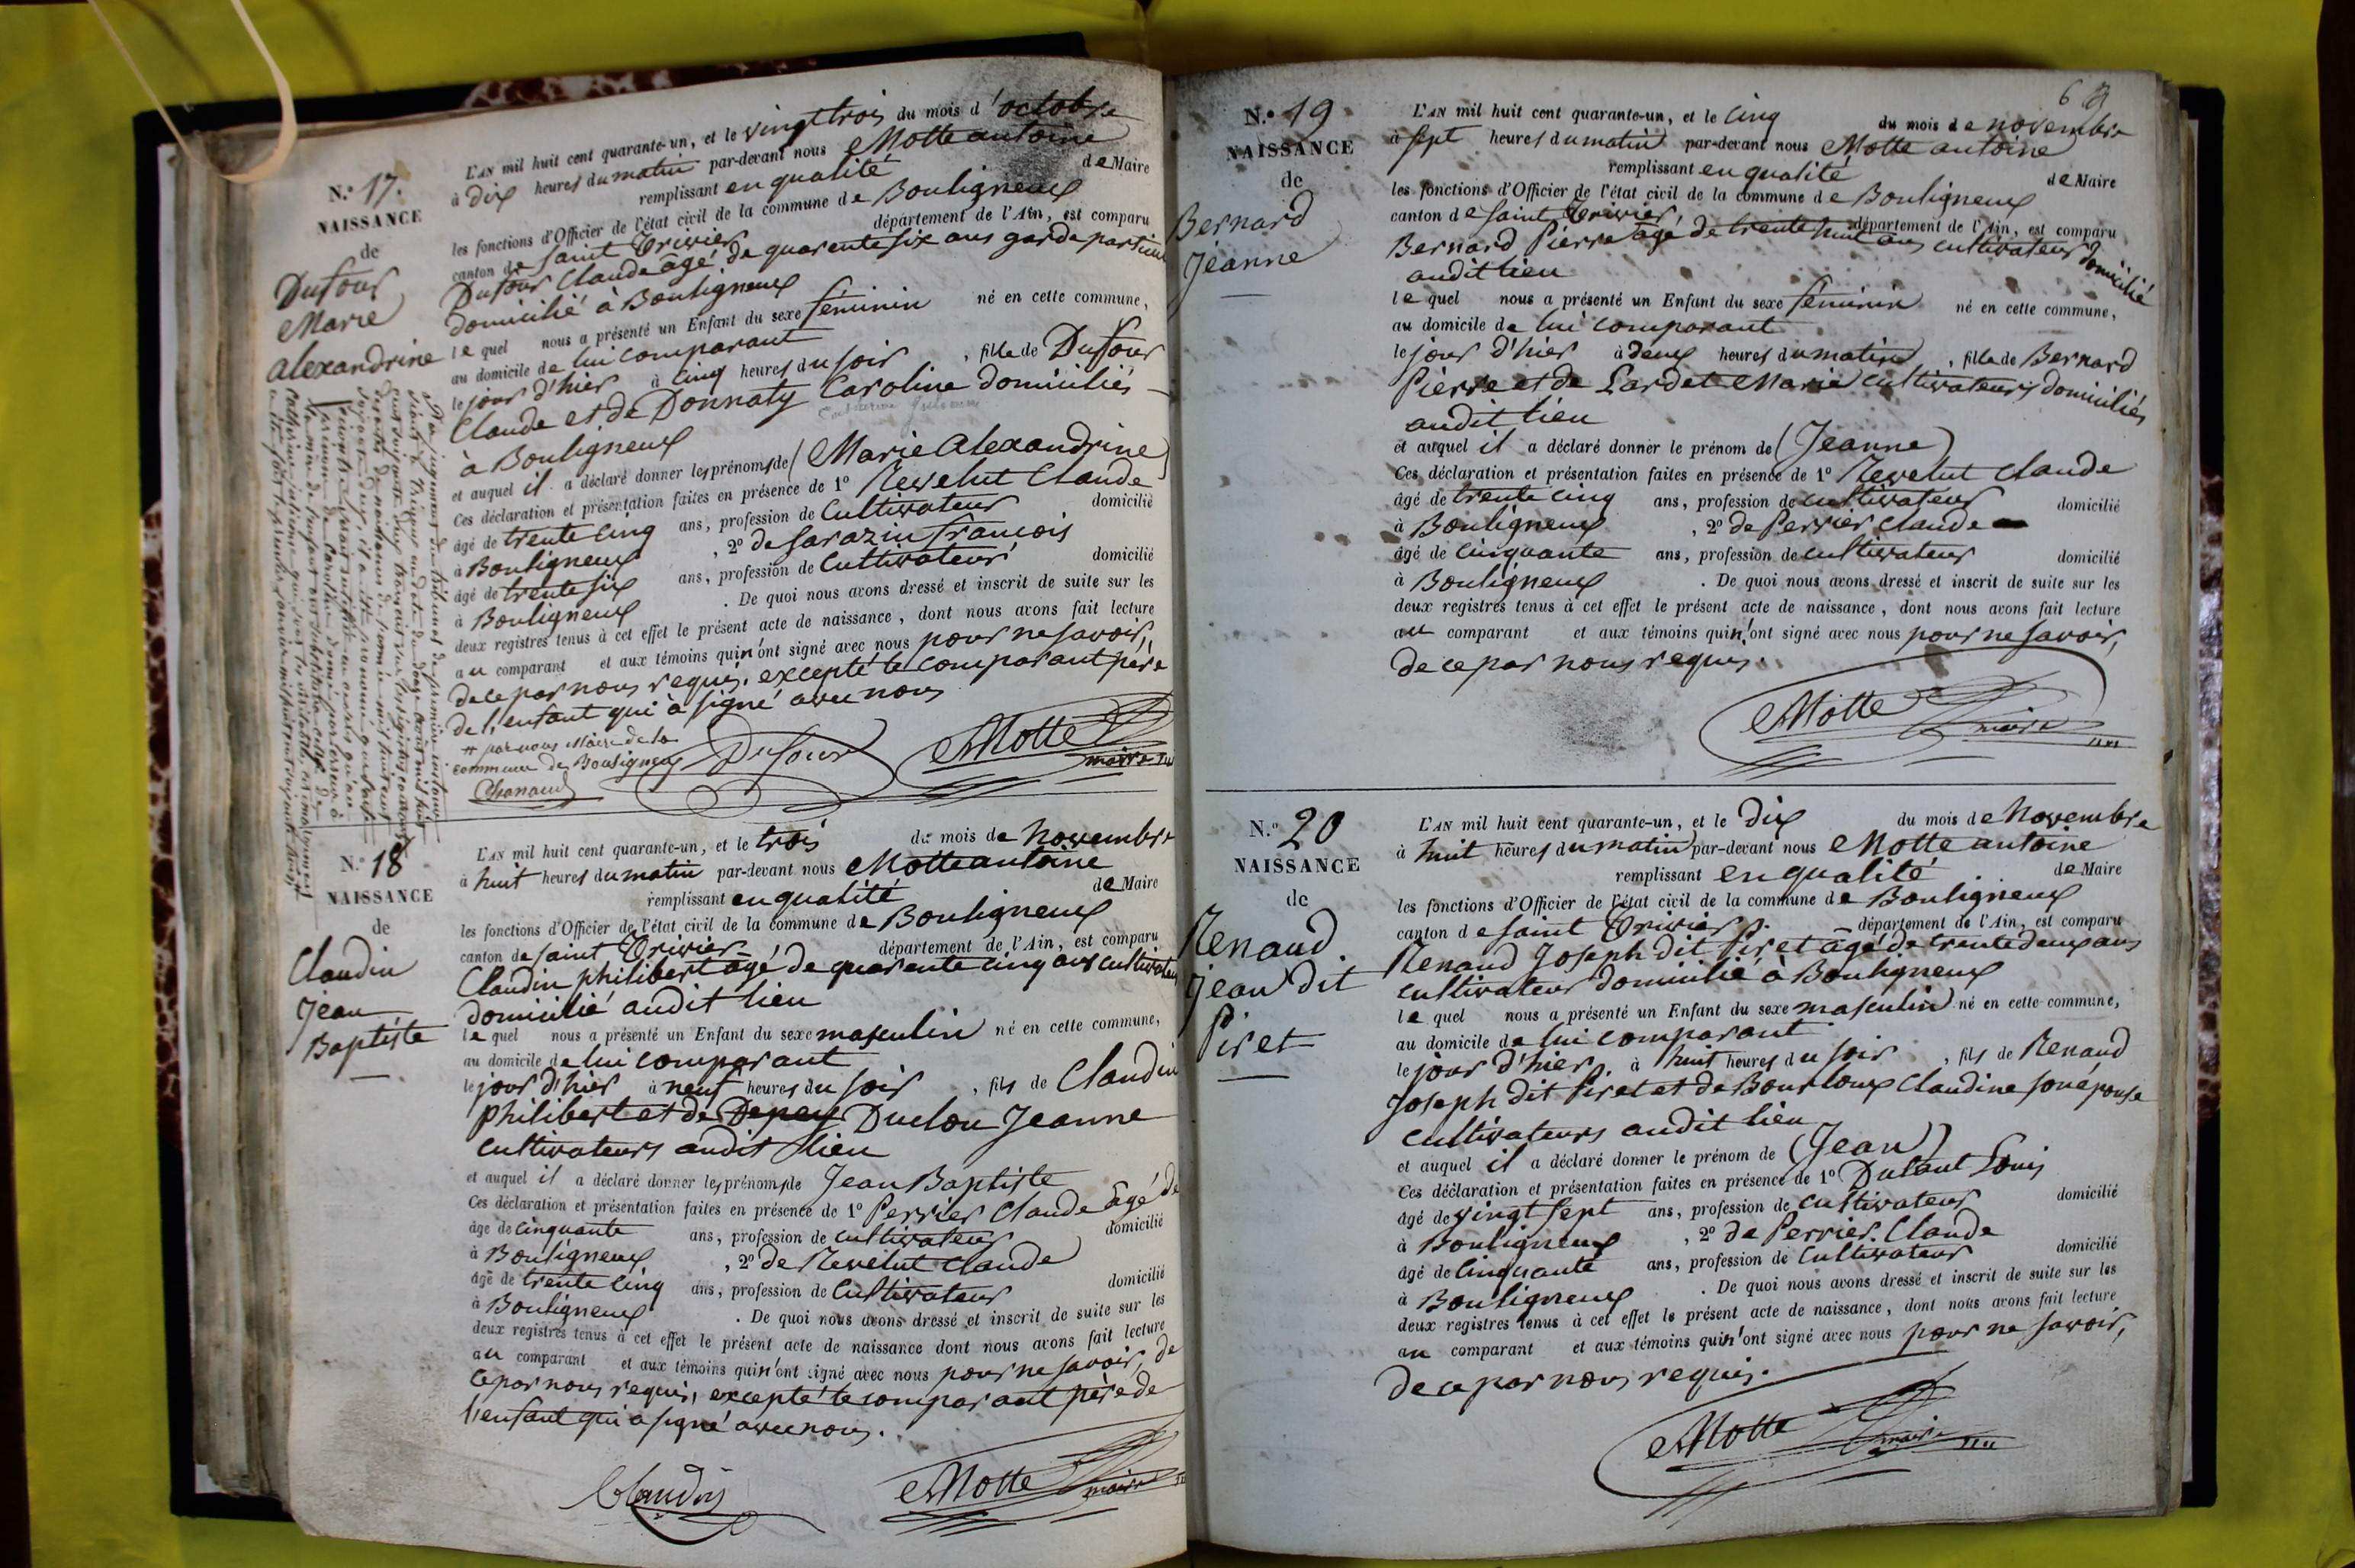 N.° 17.
NAISSANCE
de
Dufour
Marie
alexandrine
L'AN mil huit cent quarante-un, et le vingt trois du mois d'octobre
à dix heures du matin par-devant nous Motte antoine
remplissant en qualité de Maire
les fonctions d'Officier de l'état civil de la commune de Bouligneux
canton de saint Trivier département de l'Ain, est comparu
Dufour Claude âgé de quarente six ans garde particulier
domicilié à Bouligneux
le quel nous a présenté un Enfant du sexe féminin né en cette commune,
au domicile de lui comparant
le jour d'hier à cinq heures du soir, fille de Dufour
Claude et de Donnaty Caroline domiciliés
à Bouligneux
et auquel il a déclaré donner les prénoms de (Marie Alexandrine)
Ces déclaration et présentation faites en présence de 1° Revelut Claude
âgé de trente cinq ans, profession de Cultivateur domicilié
à Bouligneux, 2° de Sarazin françois
âgé de trente six ans, profession de Cultivateur domicilié
à Bouligneux. De quoi nous avons dressé et inscrit de suite sur les
deux registres tenus à cet effet le présent acte de naissance, dont nous avons fait lecture
au comparant et aux témoins qui n'ont signé avec nous pour ne savoir,
de ce par nous requis. excepté le comparant père
de l'enfant qui à signé avec nous
par nous Maire de la
commune de Bouligneux
Dufour Motte maire
N.° 18
NAISSANCE
de
Claudin
Jean
Baptiste
L'AN mil huit cent quarante-un, et le trois du mois de Novembre
à huit heures du matin par-devant nous Motte antoine
remplissant en qualité de Maire
les fonctions d'Officier de l'état civil de la commune de Bouligneux
canton de saint Trivier département de l'Ain, est comparu
Claudin philibert âgé de quarente cinq ans cultivateur
domicilié audit lieu
le quel nous a présenté un Enfant du sexe masculin né en cette commune,
au domicile de lui comparant
le jour d'hier à neuf heures du soir, fils de Claudin
philibert et de Duclou Jeanne
cultivateurs audit lieu
et auquel il a déclaré donner les prénoms de Jean Baptiste
Ces déclaration et présentation faites en présence de 1° Perrier Claude âgé de
âge de cinquante ans, profession de cultivateur domicilié
à Bouligneux, 2° de Revelut Claude
âgé de trente cinq ans, profession de Cultivateur domicilié
à Bouligneux. De quoi nous avons dressé et inscrit de suite sur les
deux registres tenus à cet effet le présent acte de naissance dont nous avons fait lecture
au comparant et aux témoins qui n'ont signé avec nous pour ne savoir, de
ce par nous requis, excepté le comparant père de
l'enfant qui a signé avec nous.
Claudin Motte maire
6
N.° 19
NAISSANCE
de
Bernard
Jeanne
L'AN mil huit cent quarante-un, et le cinq du mois de novembre
à sept heures du matin par-devant nous Motte antoine
remplissant en qualité de Maire
les fonctions d'Officier de l'état civil de la commune de Bouligneux
canton de saint Trivier, département de l'Ain, est comparu
Bernard Pierre âgé de trente huit ans cultivateur domicilié
audit lieu
le quel nous a présenté un Enfant du sexe féminin né en cette commune,
au domicile de lui comparant
le jour d'hier à deux heures du matin, fille de Bernard
Pierre et de Lardet Marie cultivateurs domiciliés
audit lieu
et auquel il a déclaré donner le prénom de (Jeanne)
Ces déclaration et présentation faites en présence de 1° Revelut Claude
âgé de trente cinq ans, profession de cultivateur domicilié
à Bouligneux, 2° de Perrier Claude
âgé de cinquante ans, profession de cultivateur domicilié
à Bouligneux. De quoi nous avons dressé et inscrit de suite sur les
deux registres tenus à cet effet le présent acte de naissance, dont nous avons fait lecture
au comparant et aux témoins qui n'ont signé avec nous pour ne savoir,
de ce par nous requis.
Motte maire
N.° 20
NAISSANCE
de
Renaud
Jean dit
Piret
L'AN mil huit cent quarante-un, et le dix du mois de Novembre
à huit heures du matin par-devant nous Motte antoine
remplissant en qualité de Maire
les fonctions d'Officier de l'état civil de la commune de Bouligneux
canton de saint Trivier département de l'Ain, est comparu
Renaud Joseph dit Piret âgé de trente deux ans
cultivateur domicilié à Bouligneux
le quel nous a présenté un Enfant du sexe masculin né en cette commune,
au domicile de lui comparant
le jour d'hier, à huit heures du soir, fils de Renaud
Joseph dit Piret et de Bourloux Claudine son épouse
cultivateurs audit lieu
et auquel il a déclaré donner le prénom de (Jean)
Ces déclaration et présentation faites en présence de 1° Dutant Louis
âgé de vingt sept ans, profession de cultivateur domicilié
à Bouligneux, 2° de Perrier Claude
âgé de cinquante ans, profession de Cultivateur domicilié
à Bouligneux. De quoi nous avons dressé et inscrit de suite sur les
deux registres tenus à cet effet le présent acte de naissance, dont nous avons fait lecture
au comparant et aux témoins qui n'ont signé avec nous pour ne savoir,
de ce par nous requis.
Motte maire